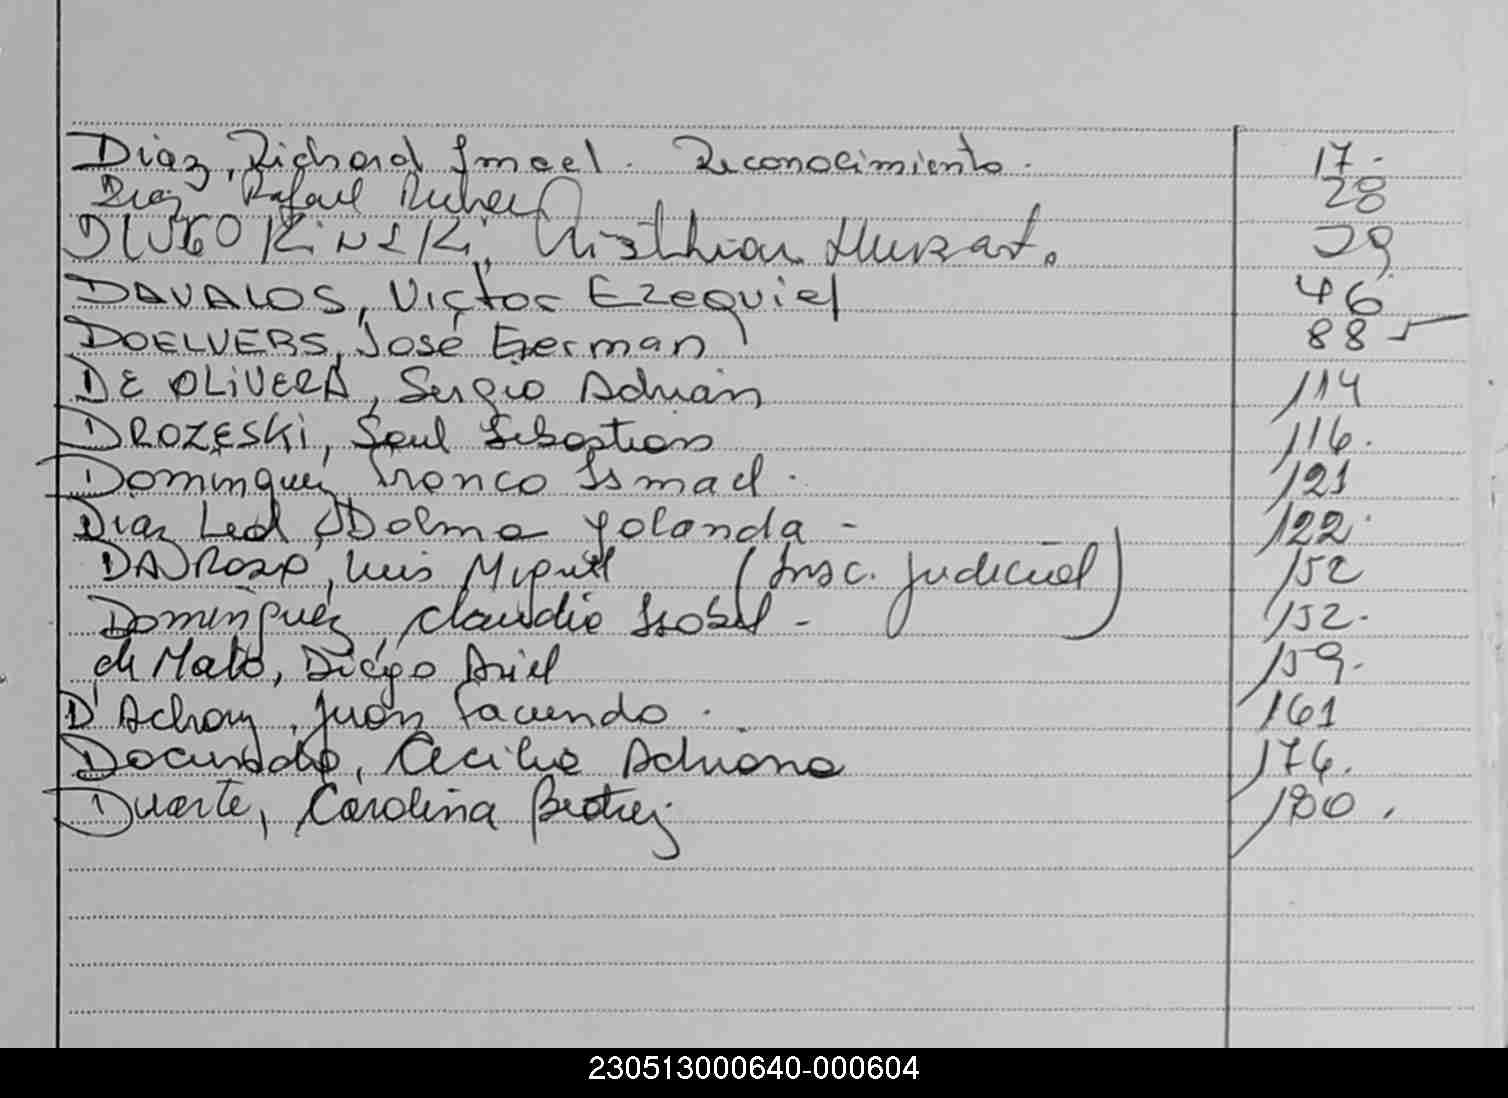 Diaz, Richard Ismael. Reconocimiento. 17.
Diaz Rafael Ruben 28
DLUGOKiNSKi, Cristhian 29
DAVALOS, Victor Ezequiel 46
DOELVERS, José German 88
DE OLiVERA, Sergio Adrian 114
DROZESKi, Saul Sebastian 116.
Dominguez, Franco Ismael. 121
Diaz Leal, Dolma Yolanda - 122
DA ROSA, Luis Miguel (Insc. Judicial) 152
Dominguez, Claudia Isabel - 152.
de Mato, Diégo Ariel 159.
D'Achary, Juan Facundo. 161
Cecilia Adriana 176.
Duarte, Carolina Beatriz 180.
230513000640-000604